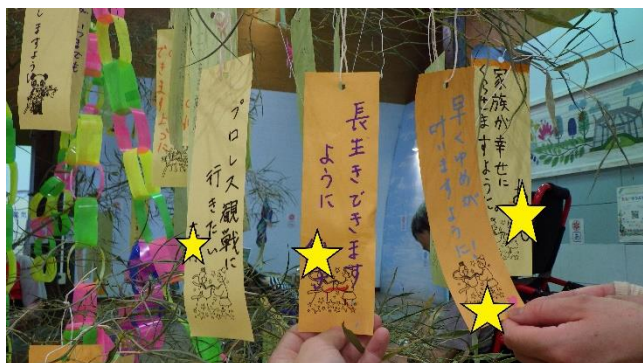 しますように
できますように
プロレス観戦に
行きたい
長生きできます
ように
早くゆめが
叶いますように!
家族が幸せに
くらせますように